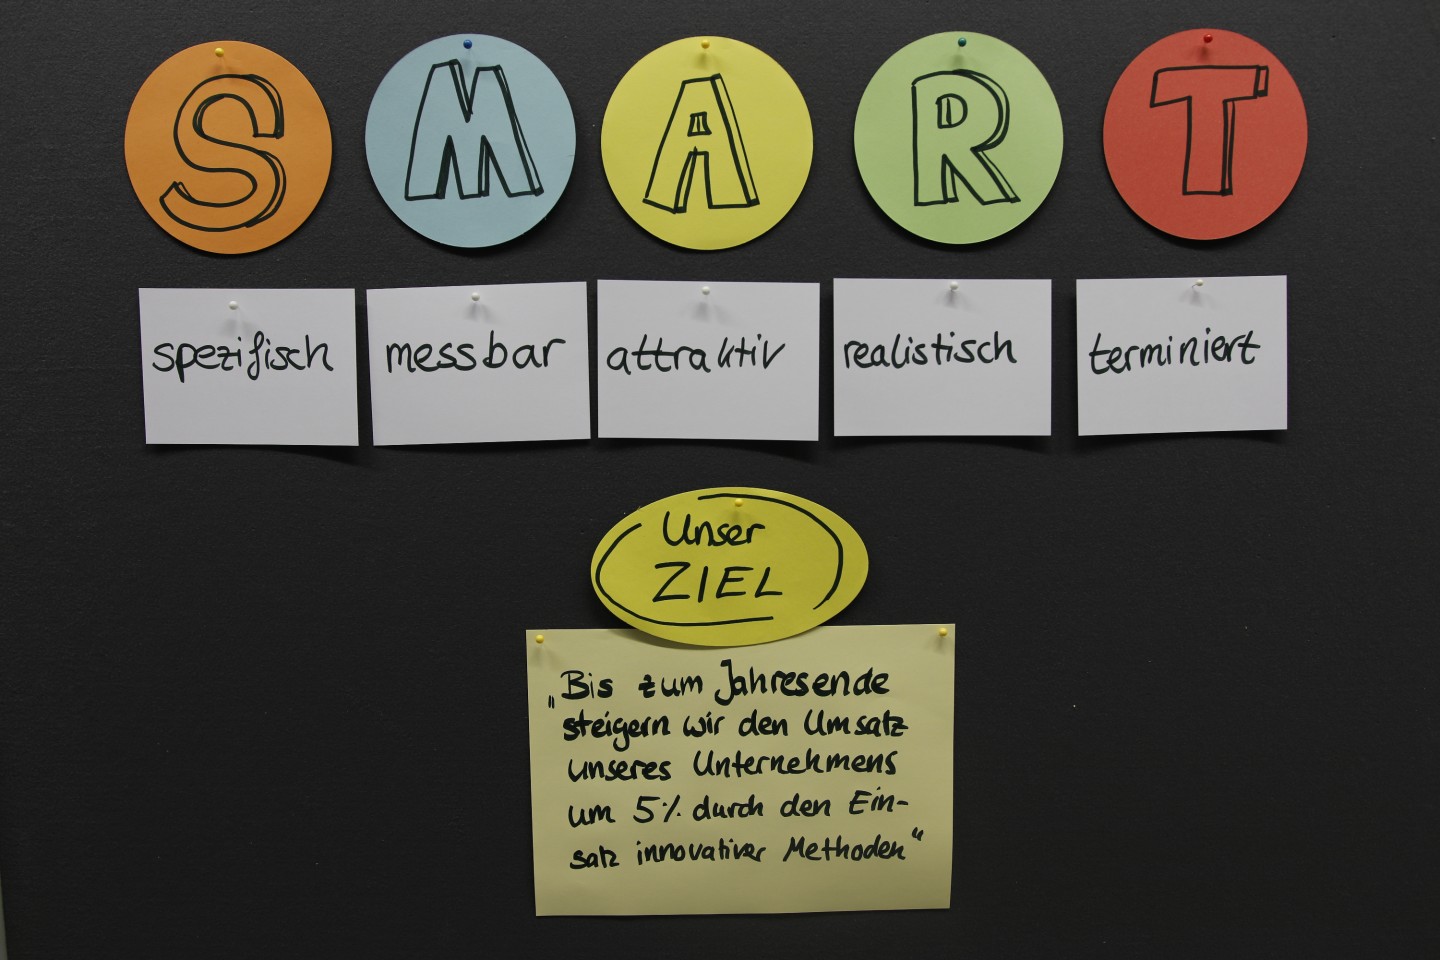 S M A R T
spezifisch messbar attraktiv realistisch terminiert
Unser
ZIEL
„Bis zum Jahresende
steigern wir den Umsatz
unseres Unternehmens
um 5% durch den Ein-
satz innovativer Methoden“